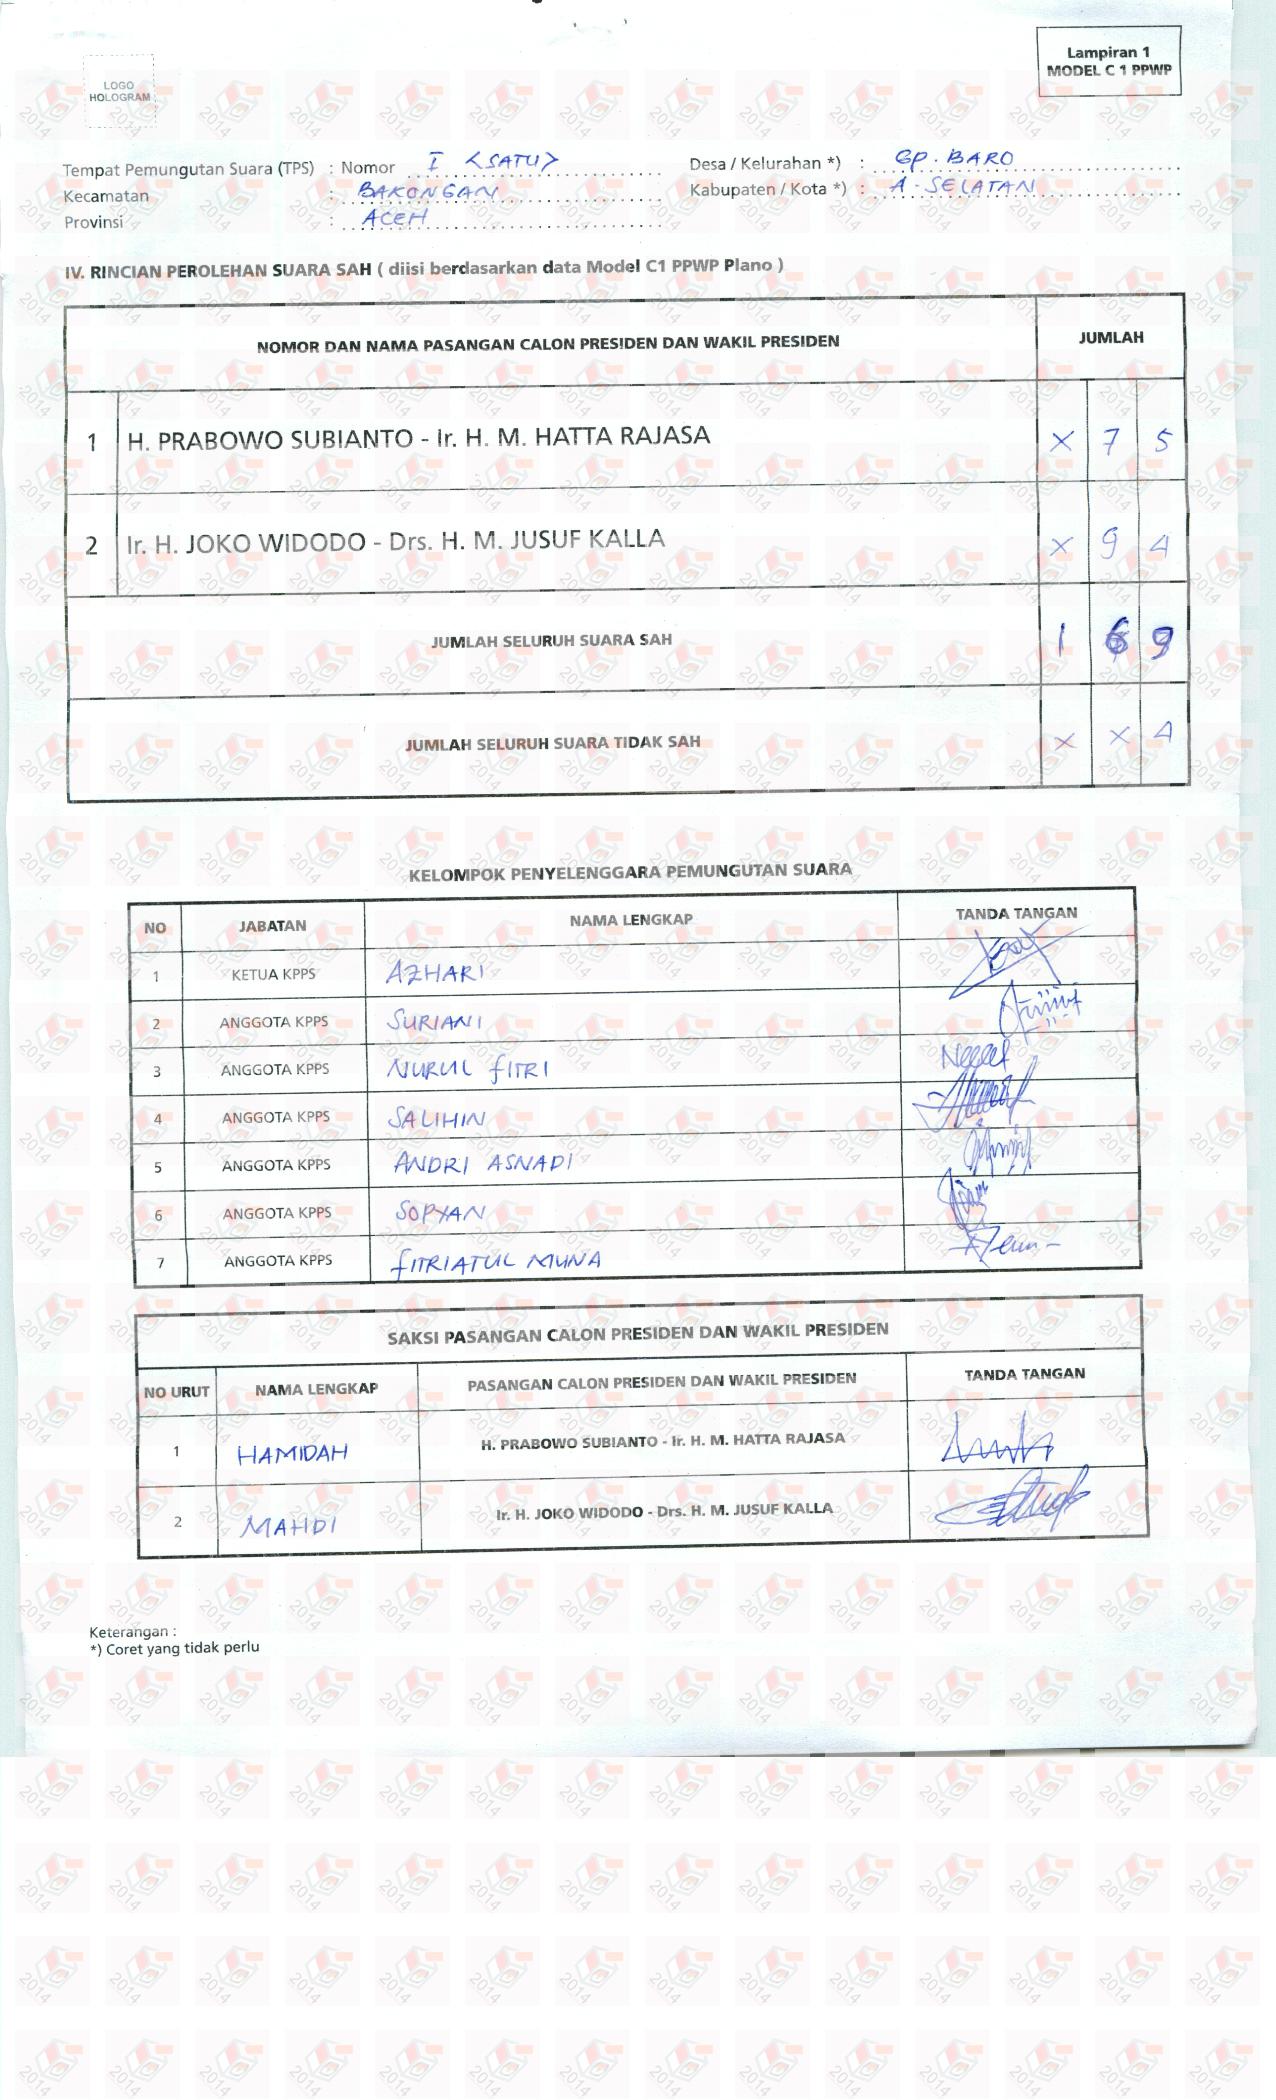 Lampiran 1
MODEL C 1 PPWP
LOGO
HOLOGRAM
Tempat Pemungutan Suara (TPS) : Nomor I <SATU>
Desa / Kelurahan *) : GP. BARO
Kecamatan : BAKONGAN
Kabupaten / Kota *) : A - SELATAN
Provinsi : ACEH
IV. RINCIAN PEROLEHAN SUARA SAH ( diisi berdasarkan data Model C1 PPWP Plano )
NOMOR DAN NAMA PASANGAN CALON PRESIDEN DAN WAKIL PRESIDEN JUMLAH
1 H. PRABOWO SUBIANTO - Ir. H. M. HATTA RAJASA X 7 5
2 Ir. H. JOKO WIDODO - Drs. H. M. JUSUF KALLA X 9 4
JUMLAH SELURUH SUARA SAH 1 6 9
JUMLAH SELURUH SUARA TIDAK SAH X X 4
KELOMPOK PENYELENGGARA PEMUNGUTAN SUARA
NO JABATAN NAMA LENGKAP TANDA TANGAN
1 KETUA KPPS AZHARI
2 ANGGOTA KPPS SURIANI
3 ANGGOTA KPPS NURUL FITRI
4 ANGGOTA KPPS SALIHIN
5 ANGGOTA KPPS ANDRI ASNADI
6 ANGGOTA KPPS SOPYAN
7 ANGGOTA KPPS FITRIATUL MUNA
SAKSI PASANGAN CALON PRESIDEN DAN WAKIL PRESIDEN
NO URUT NAMA LENGKAP PASANGAN CALON PRESIDEN DAN WAKIL PRESIDEN TANDA TANGAN
1 HAMIDAH H. PRABOWO SUBIANTO - Ir. H. M. HATTA RAJASA
2 MAHDI Ir. H. JOKO WIDODO - Drs. H. M. JUSUF KALLA
Keterangan :
*) Coret yang tidak perlu